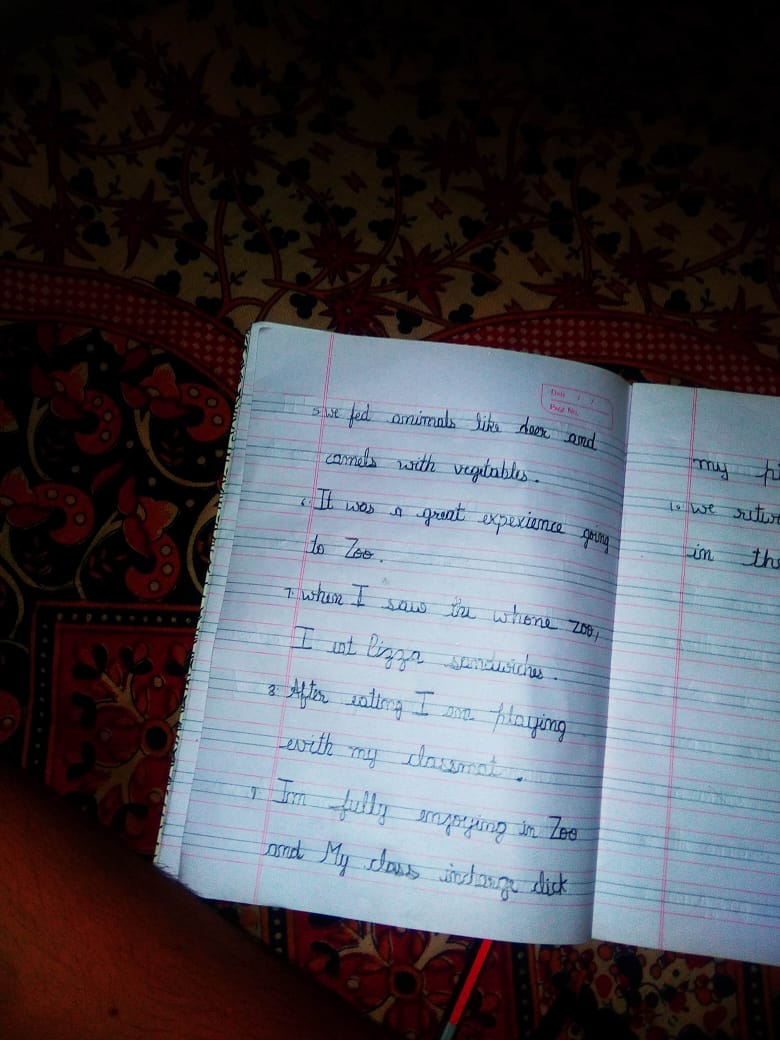 Date / /
Page No.
5. we fed animals like deer and
camels with vegitables.
6. It was a great experience going
to Zoo.
7. when I saw the whone zoo,
I eat Pizza sandwiches.
8. After eating I am playing
with my classmat.
9 Im fully enjoying in Zoo
and My class incharge click
my pi
10. we retur
in the